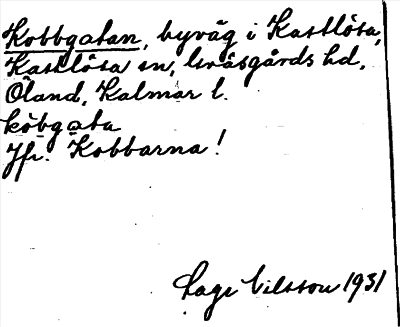 Kobbgatan, byväg i Kastlösa,
Kastlösa sn, Gräsgårds hd,
Öland, Kalmar l.
kòbgata
Jfr. Kobbarna!
Lage Nilsson 1931